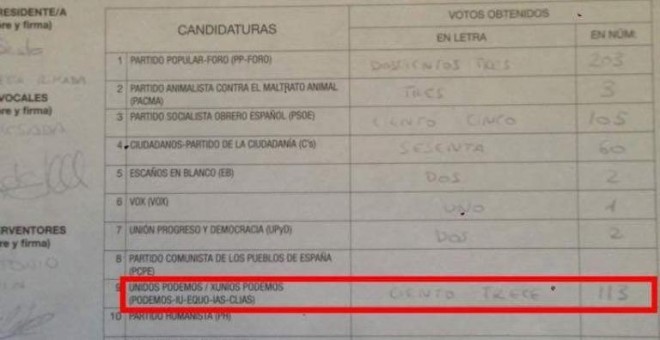 RESIDENTE/A
re y firma)
VOCALES
re y firma)
RVENTORES
re y firma)
CANDIDATURAS
VOTOS OBTENIDOS
EN LETRA
EN NÚM.
1 PARTIDO POPULAR-FORO (PP-FORO) DOSCIENTOS TRES 203
2 PARTIDO ANIMALISTA CONTRA EL MALTRATO ANIMAL
(PACMA) TRES 3
3 PARTIDO SOCIALISTA OBRERO ESPAÑOL (PSOE) CIENTO CINCO 105
4 CIUDADANOS-PARTIDO DE LA CIUDADANÍA (C's) SESENTA 60
5 ESCAÑOS EN BLANCO (EB) DOS 2
6 VOX (VOX) UNO 1
7 UNIÓN PROGRESO Y DEMOCRACIA (UPyD) DOS 2
8 PARTIDO COMUNISTA DE LOS PUEBLOS DE ESPAÑA
(PCPE)
9 UNIDOS PODEMOS / XUNIOS PODEMOS
(PODEMOS-IU-EQUO-IAS-CLIAS) CIENTO TRECE 113
10 PARTIDO HUMANISTA (PH)